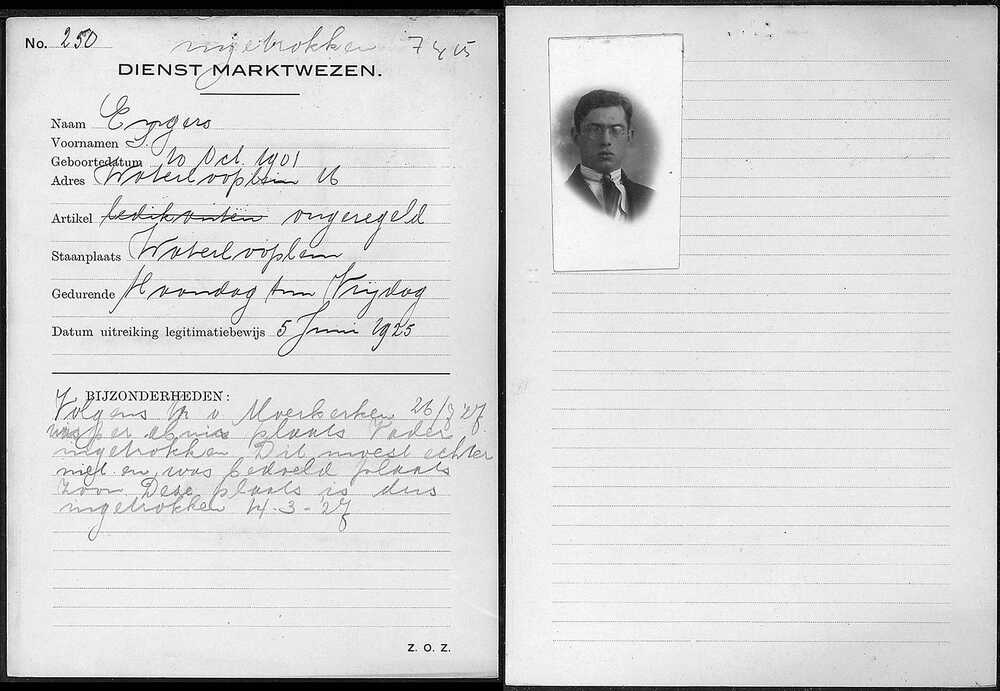 No. 250
ingetrokken 7
DIENST MARKTWEZEN.
Naam Engers
Voornamen S.
Geboortedatum 10 Oct. 1901
Adres Waterlooplein 16
Artikel ledikanten ongeregeld
Staanplaats Waterlooplein
Gedurende Maandag t/m Vrijdag
Datum uitreiking legitimatiebewijs 5 Juni 1925
BIJZONDERHEDEN:
Volgens v Moerkerken 26/3 27
was per abuis plaats Vader
ingetrokken Dit moest echter
niet en was bedoeld plaats
zoon Deze plaats is dus
ingetrokken 14-3-27
Z. O. Z.